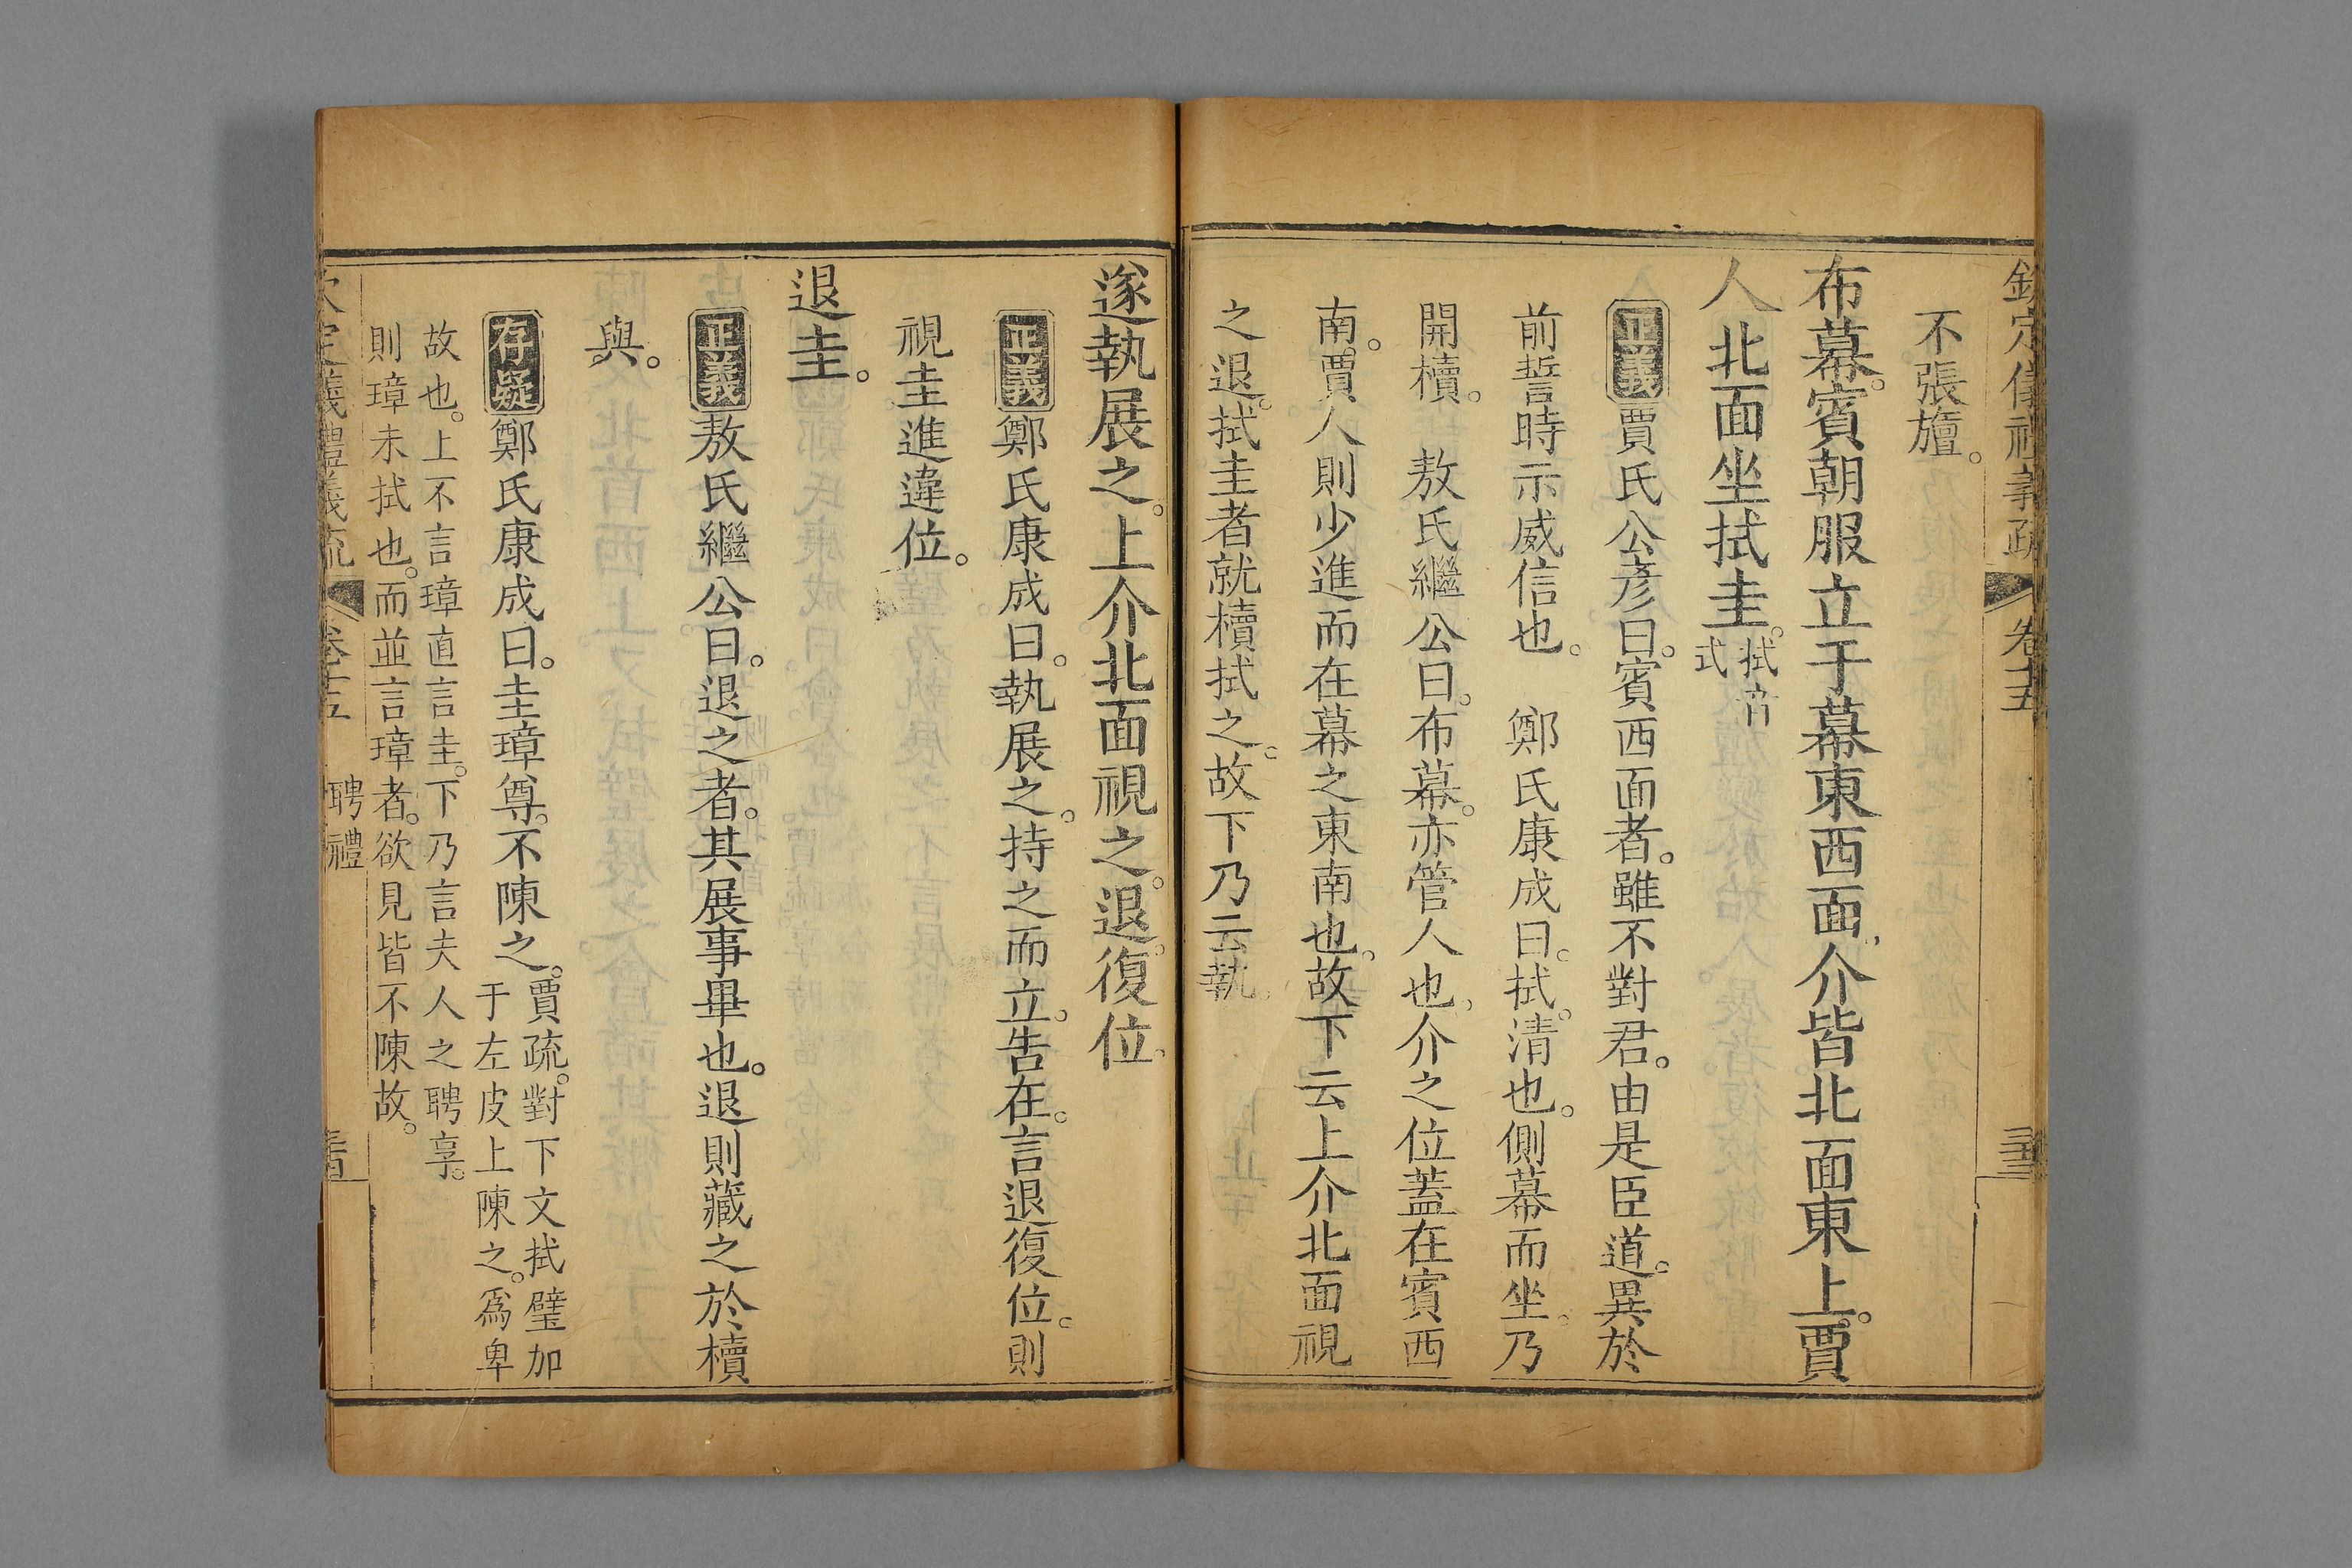 欽定儀禮義疏 卷十五
不張旜。
布幕。賓朝服立于幕東西面。介皆北面東上。賈
人北面坐拭圭。拭音式
正義賈氏公彥曰。賓西面者。雖不對君。由是臣道。異於
前誓時示威信也。 鄭氏康成曰。拭。清也。側幕而坐。乃
開櫝。 敖氏繼公曰。布幕。亦管人也。介之位蓋在賓西
南。賈人則少進而在幕之東南也。故下云上介北面視
之退。拭圭者就櫝拭之。故下乃云執。
遂執展之。上介北面視之。退。復位。
正義鄭氏康成曰。執展之。持之而立。告在。言退復位。則
視圭進違位。
退圭。
正義敖氏繼公曰。退之者。其展事畢也。退則藏之於櫝
與。
存疑鄭氏康成曰。圭璋尊。不陳之。賈疏。對下文拭璧加
于左皮上陳之。爲卑
故也。上不言璋直言圭。下乃言夫人之聘享。
則璋未拭也。而並言璋者。欲見皆不陳故。
欽定義禮義疏 卷十五 聘禮